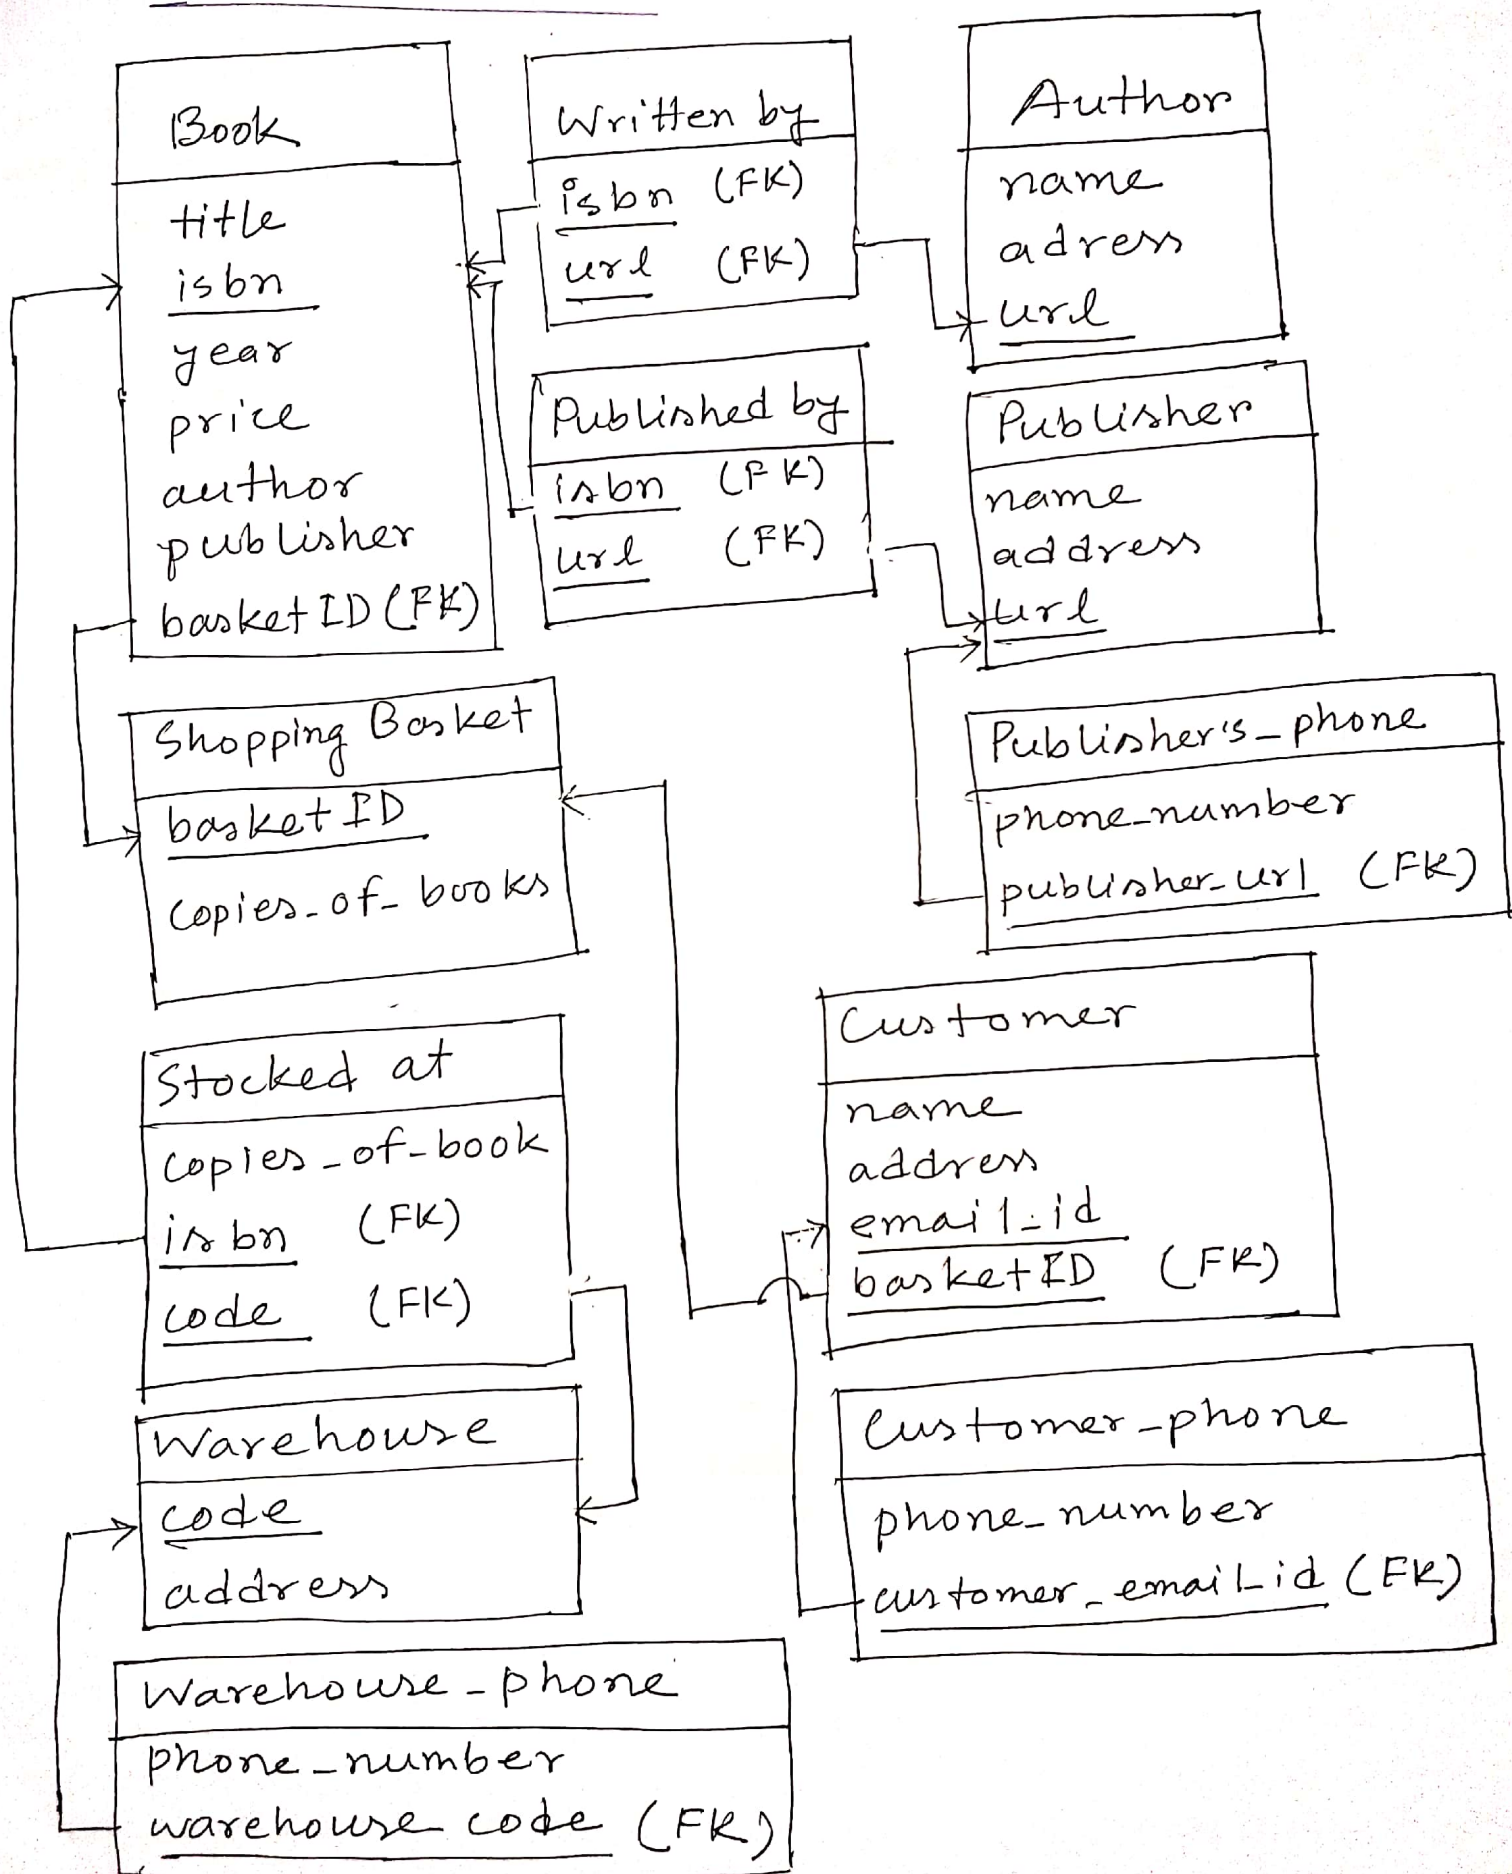 Book
title
isbn
year
price
author
publisher
basket ID (FK)
Written by
isbn (FK)
url (FK)
Author
name
adress
url
Published by
isbn (FK)
url (FK)
Publisher
name
address
url
Shopping Basket
basket ID
copies_of_books
Publisher's_phone
phone_number
publisher_url (FK)
Stocked at
copies_of_book
isbn (FK)
code (FK)
Customer
name
address
email_id
basket ID (FK)
Warehouse
code
address
Customer_phone
phone_number
customer_email_id (FK)
Warehouse_phone
phone_number
warehouse code (FK)